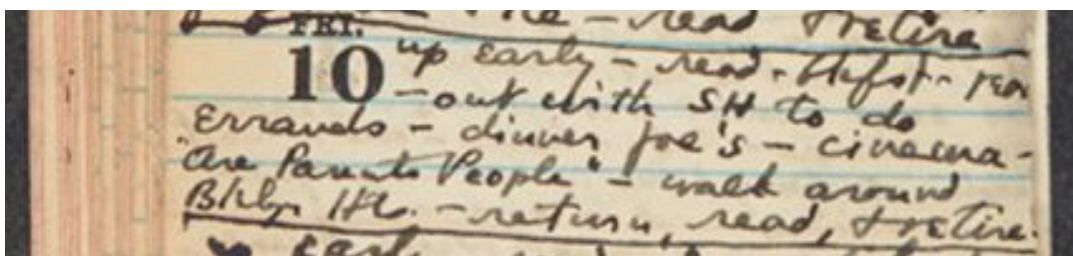 – read & retire
FRI.
10 up early – read – bkfst – read
– out with SH to do
errands – dinner Joe's – cinema –
"Are Parents People" – walk around
Bklyn Hts. – return, read, & retire.